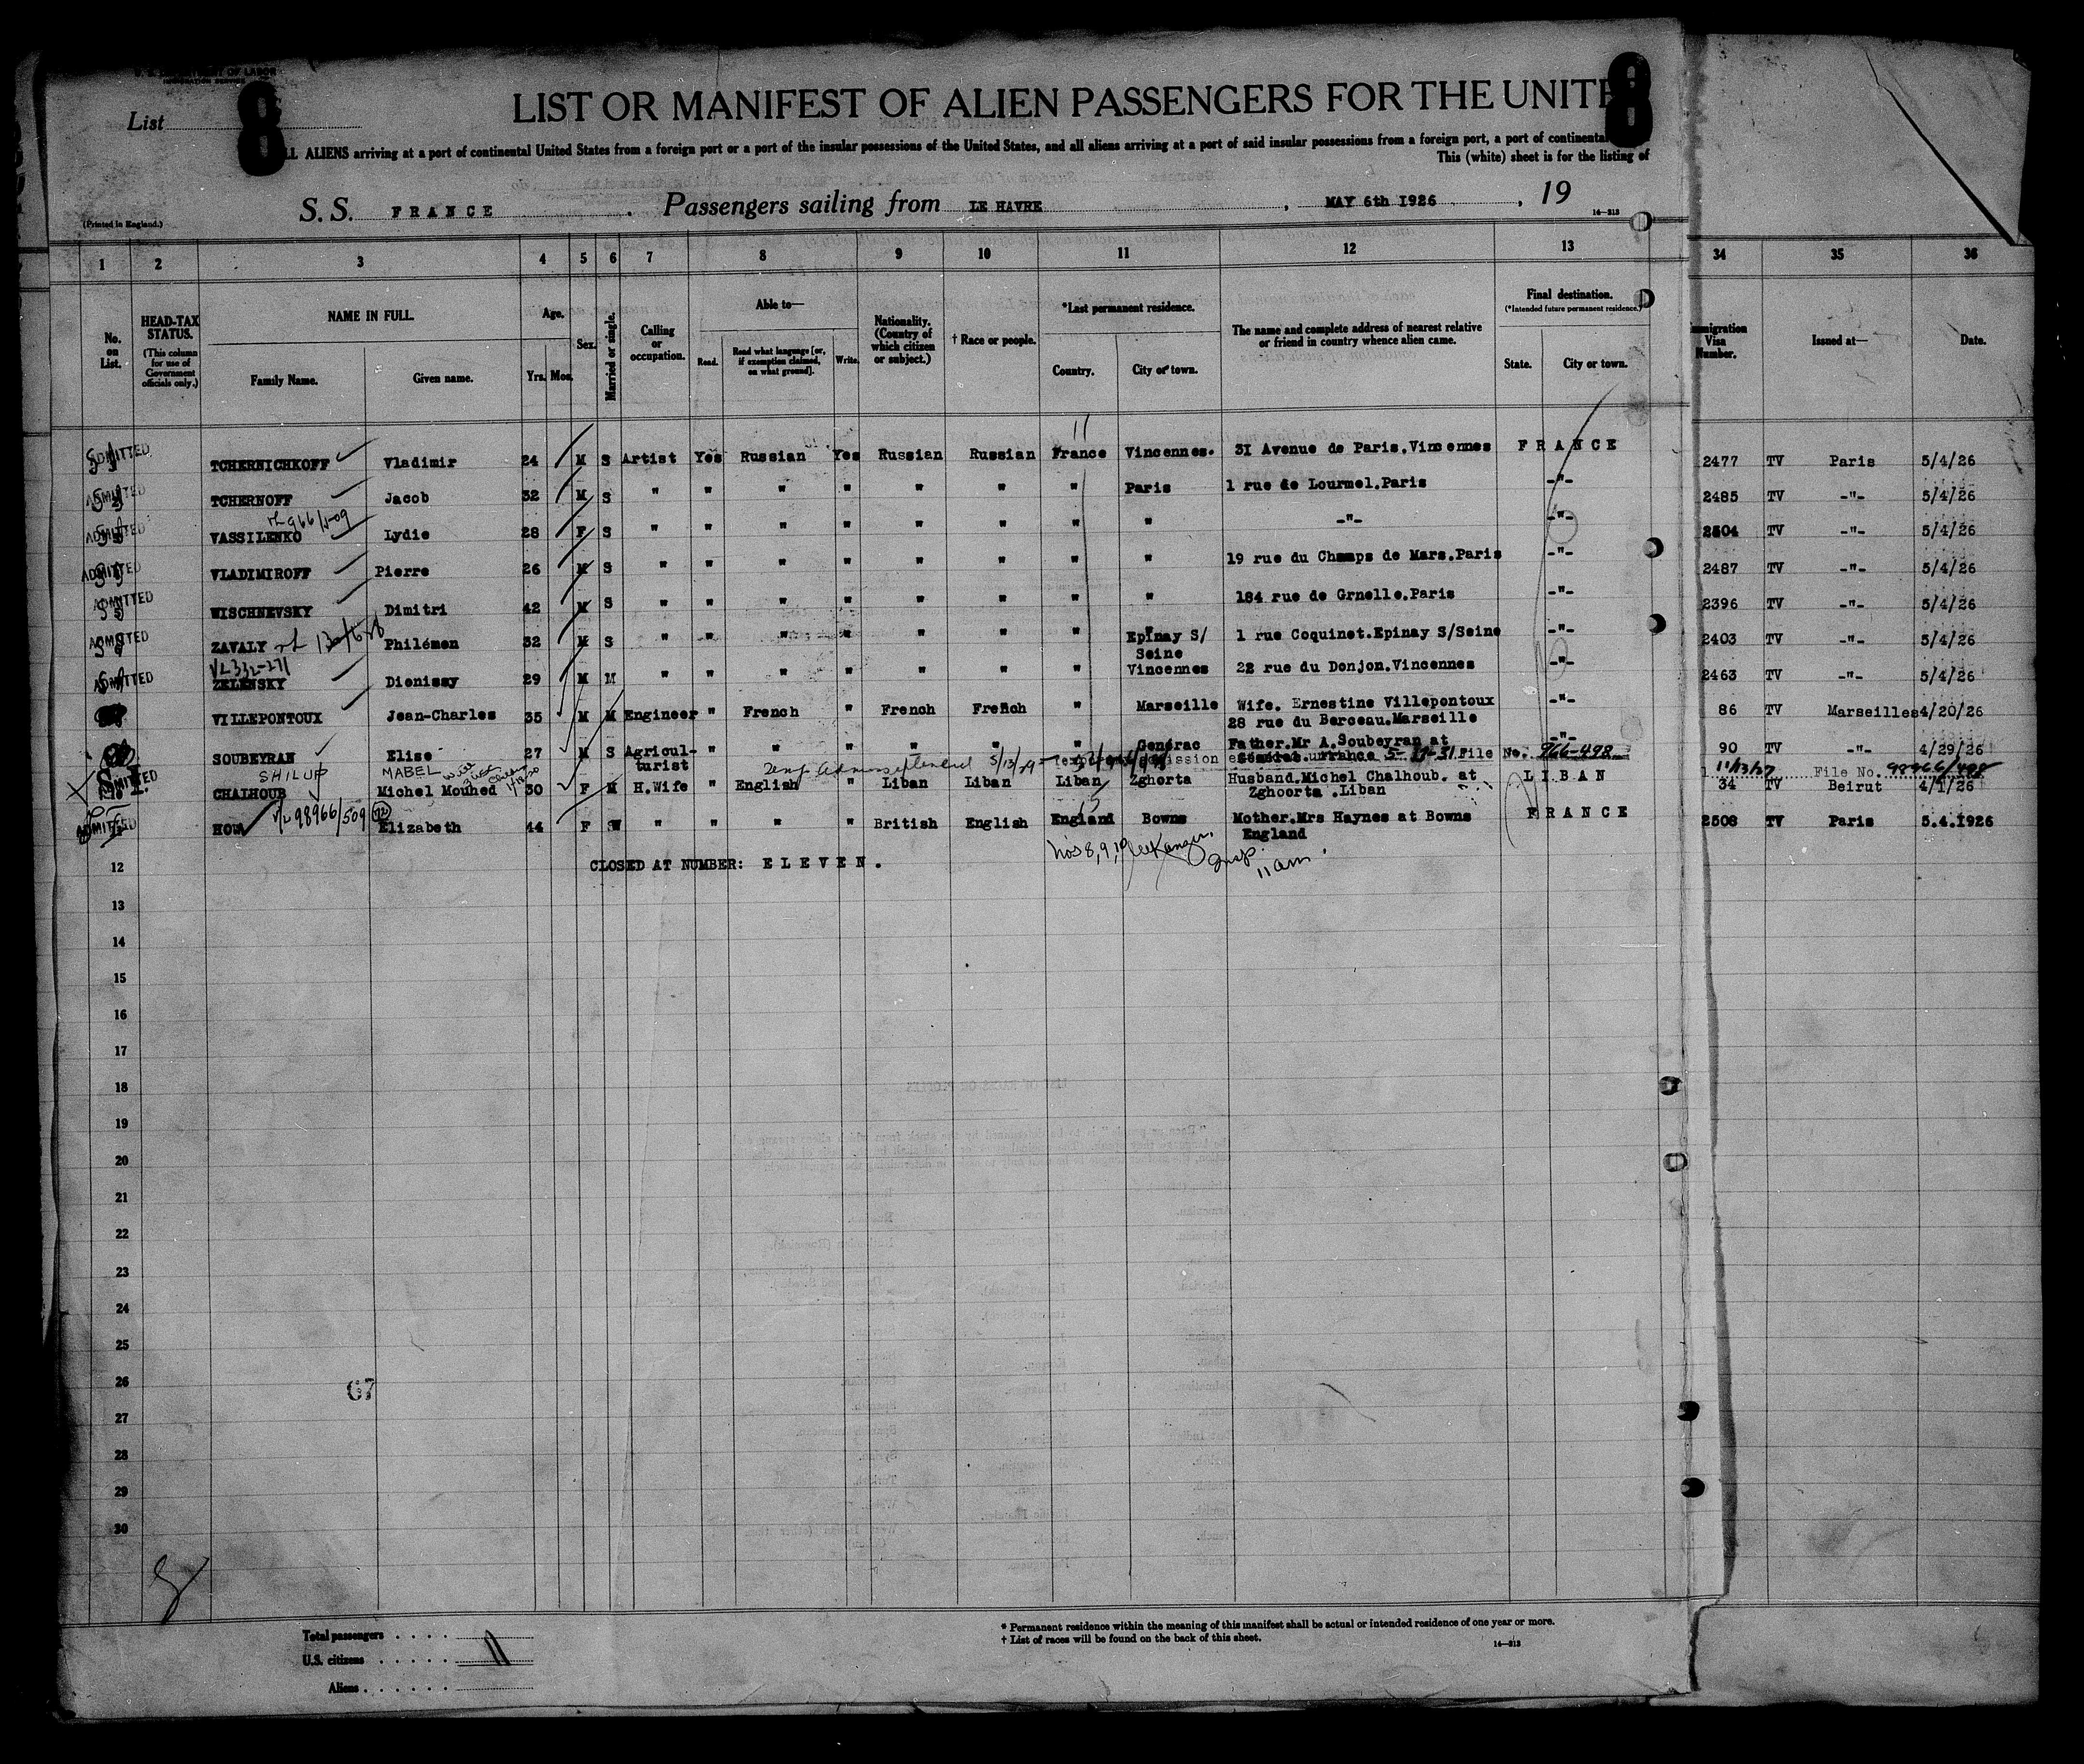 U. S. DEPARTMENT OF LABOR
IMMIGRATION SERVICE
List 8
8
LIST OR MANIFEST OF ALIEN PASSENGERS FOR THE UNITE
LL ALIENS arriving at a port of continental United States from a foreign port or a port of the insular possessions of the United States, and all aliens arriving at a port of said insular possessions from a foreign port, a port of continental
This (white) sheet is for the listing of
(Printed in England.)
S. S. FRANCE . Passengers sailing from LE HAVRE , MAY 6th 1926 , 19
14—313
1 2 3 4 5 6 7 8 9 10 11 12 13 34 35 36
No. on List.
HEAD-TAX STATUS. (This column for use of Government officials only.)
NAME IN FULL.
Family Name. Given name.
Age.
Yrs. Mos.
Sex.
Married or single.
Calling or occupation.
Able to—
Read. Read what language [or, if exemption claimed, on what ground]. Write.
Nationality. (Country of which citizen or subject.)
† Race or people.
*Last permanent residence.
Country. City or town.
The name and complete address of nearest relative or friend in country whence alien came.
Final destination. (*Intended future permanent residence.)
State. City or town.
mmigration Visa Number.
Issued at—
Date.
11
ADMITTED TCHERNICHKOFF Vladimir 24 M S Artist Yes Russian Yes Russian Russian France Vincennes. 31 Avenue de Paris.Vincennes FRANCE 2477 TV Paris 5/4/26
ADMITTED TCHERNOFF Jacob 32 M S " " " " " " " Paris 1 rue de Lourmel.Paris -"- 2485 TV -"- 5/4/26
966/509
ADMITTED VASSILENKO Lydie 28 F S " " " " " " " " -"- -"- 2504 TV -"- 5/4/26
ADMITTED VLADIMIROFF Pierre 26 M S " " " " " " " " 19 rue du Champs de Mars.Paris -"- 2487 TV -"- 5/4/26
ADMITTED WISCHNEVSKY Dimitri 42 M S " " " " " " " " 184 rue de Grnelle.Paris -"- 2396 TV -"- 5/4/26
ADMITTED ZAVALY Philémon 32 M S " " " " " " " Epinay S/ Seine 1 rue Coquinet.Epinay S/Seine -"- 2403 TV -"- 5/4/26
VL332-271
ADMITTED ZELENSKY Dionissy 29 M M " " " " " " " Vincennes 22 rue du Donjon.Vincennes -"- 2463 TV -"- 5/4/26
VILLEPONTOUX Jean-Charles 35 M M Engineer " French " French French " Marseille Wife. Ernestine Villepontoux -"- 86 TV Marseilles 4/20/26
28 rue du Berceau.Marseille
SOUBEYRAN Elise 27 M S Agricul-turist " " " " " " Genérac Father.Mr A.Soubeyran at -"- 90 TV -"- 4/29/26
File No. 966-498
SHILUP MABEL
11/13/27 File No. 98966/498
S.I. ADMITTED CHALHOUB Michel Mouhed 30 F M H.Wife " English " Liban Liban Liban Zghorta Husband.Michel Chalhoub. at LIBAN 34 TV Beirut 4/1/26
Zghoorta .Liban
VL 98966/509
ADMITTED HOW Elizabeth 44 F W " " " " British English England Bowns Mother.Mrs Haynes at Bowns FRANCE 2508 TV Paris 5.4.1926
England
Nos 8,9,10 Insp. 11 am
12 CLOSED AT NUMBER: ELEVEN.
13
14
15
16
17
18
19
20
21
22
23
24
25
26
67
27
28
29
30
Total passengers . . . .
U.S. citizens . . . . . . 11
Aliens . . . . . .
* Permanent residence within the meaning of this manifest shall be actual or intended residence of one year or more.
† List of races will be found on the back of this sheet.
14—313